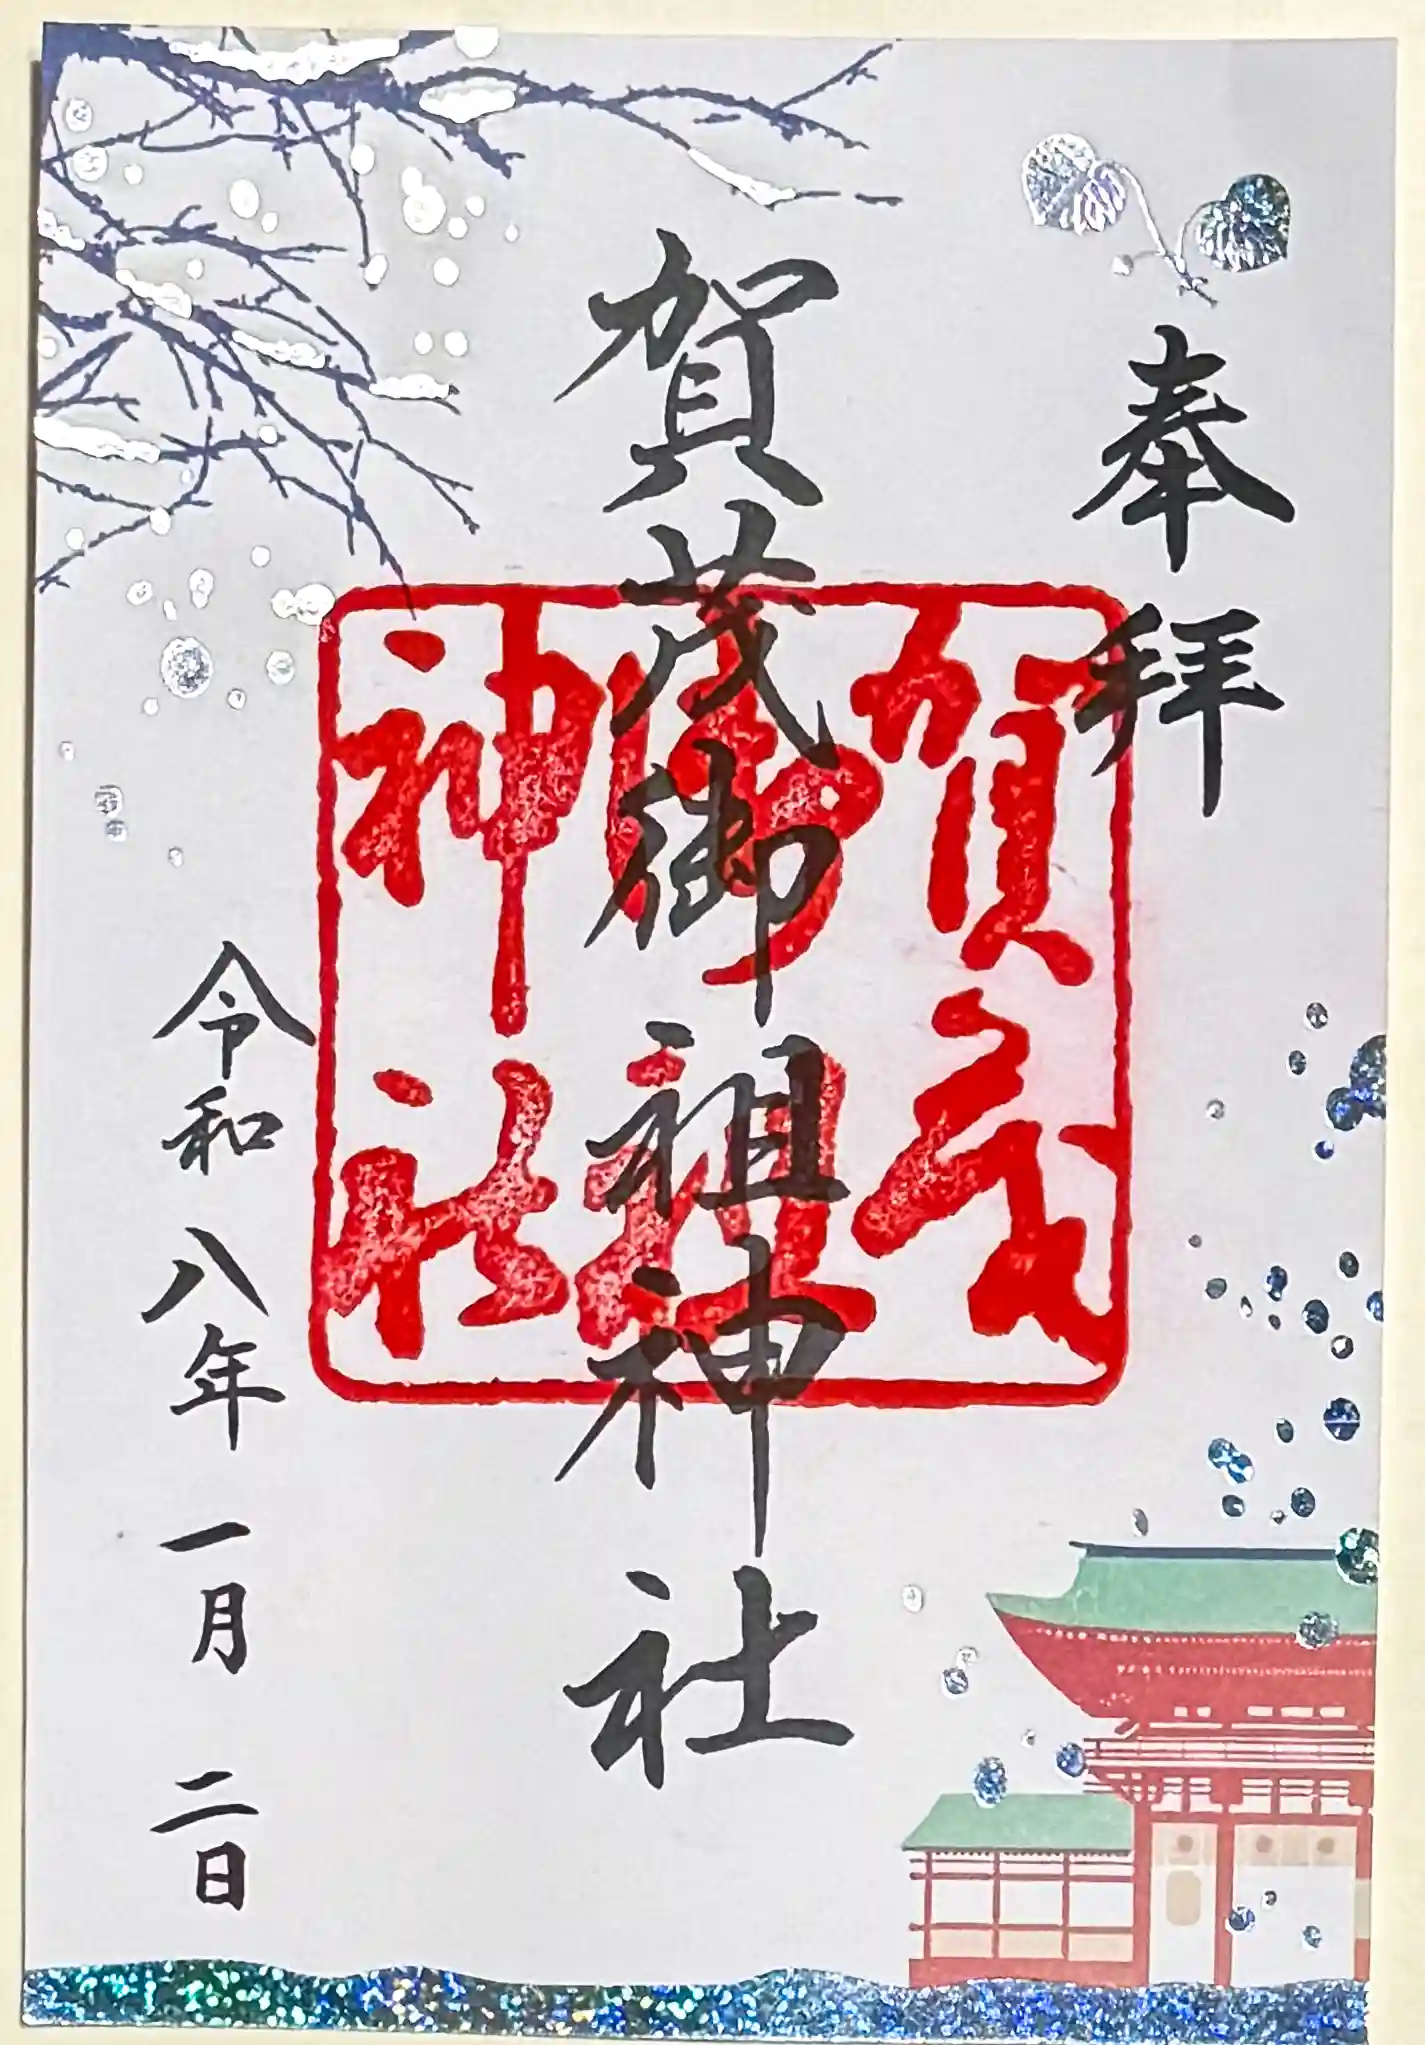 奉拝
賀茂御祖神社
賀茂
御祖
神社
令和八年一月二日